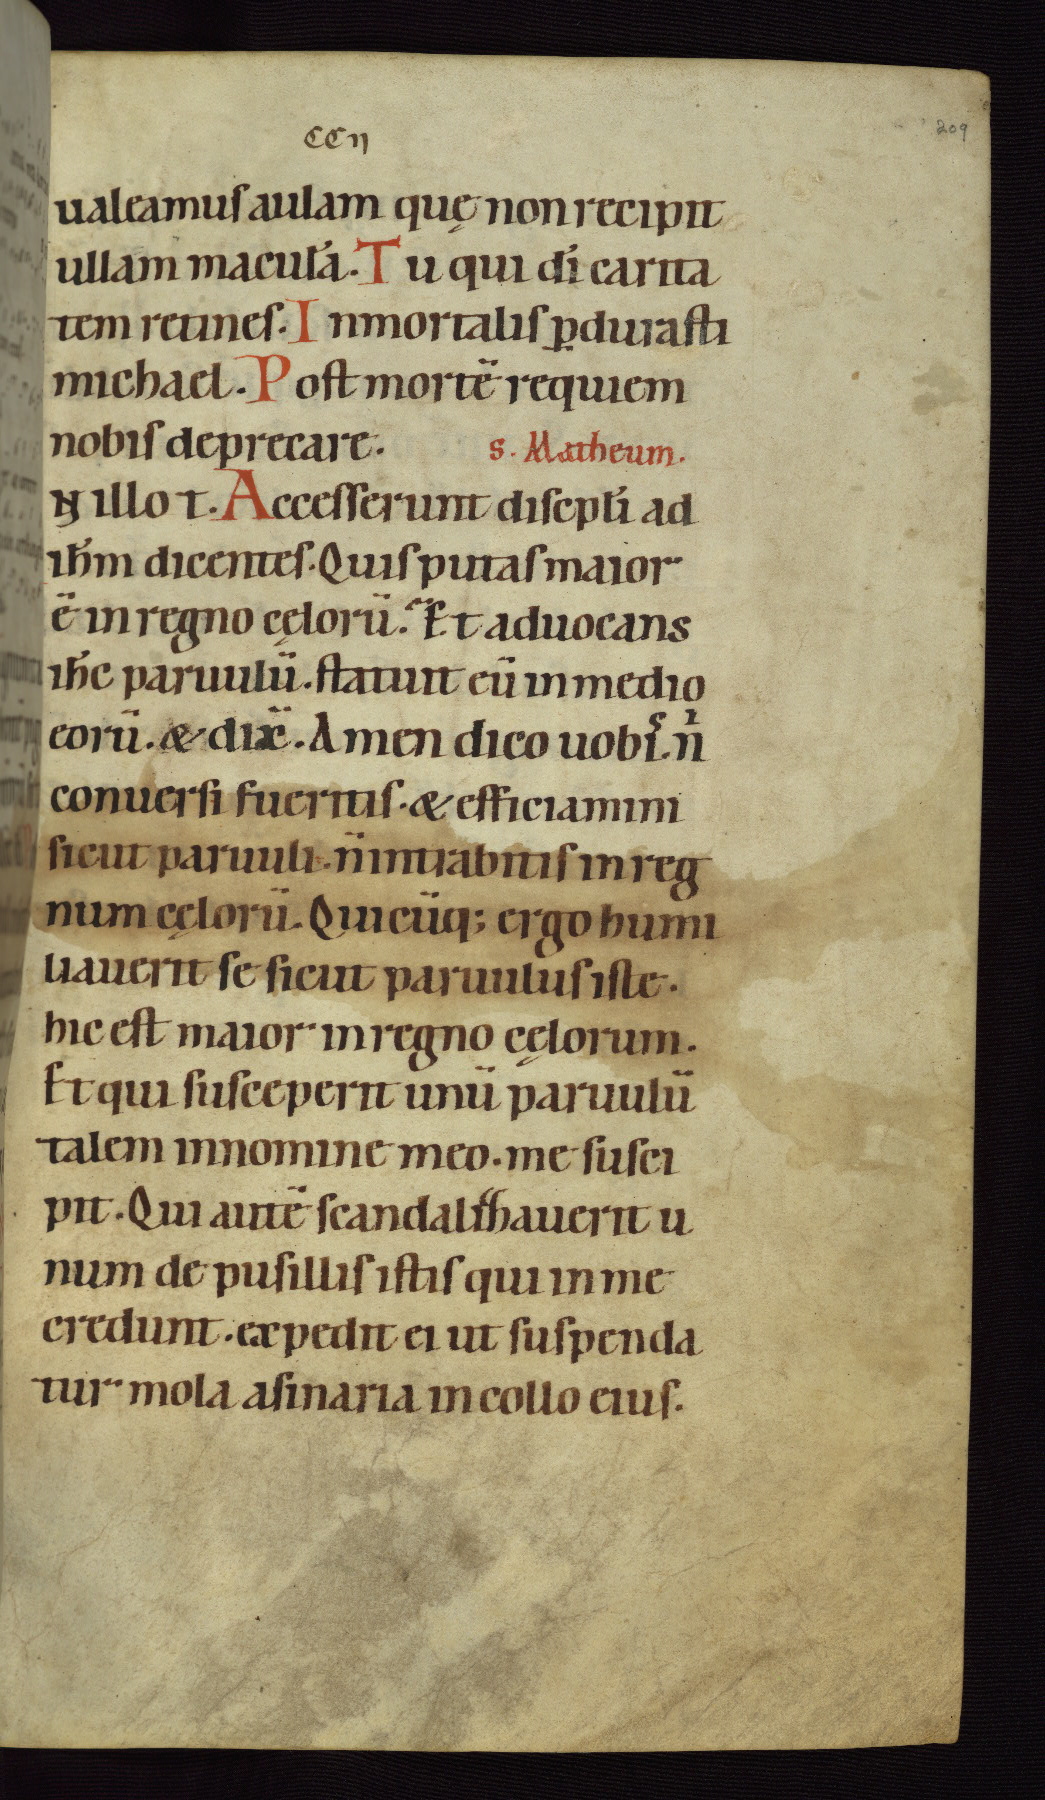 CCII
209
ualeamus aulam quę non recipit
ullam maculā. Tu qui dī carita
tem retines. Inmortalis ꝑdurasti
michael. Post mortē requiem
nobis deprecare. s. Matheum.
IN illo t. Accesserunt discipłi ad
ihm̄ dicentes. Quis putas maior
ē in regno cęlorū. Et aduocans
ihc̄ paruulū. statuit eū in medio
eorū. & dix̄. Amen dico uobis. ni
conuersi fueritis. & efficiamini
sicut paruuli. n̄ intrabitis in reg
num cęlorū. Quicūq; ergo humi
liauerit se sicut paruulus iste.
hic est maior in regno cęlorum.
Et qui susceperit unū paruulū
talem in nomine meo. me susci
pit. Qui autē scandalizauerit u
num de pusillis istis qui in me
credunt. expedit ei ut suspenda
tur mola asinaria in collo eius.